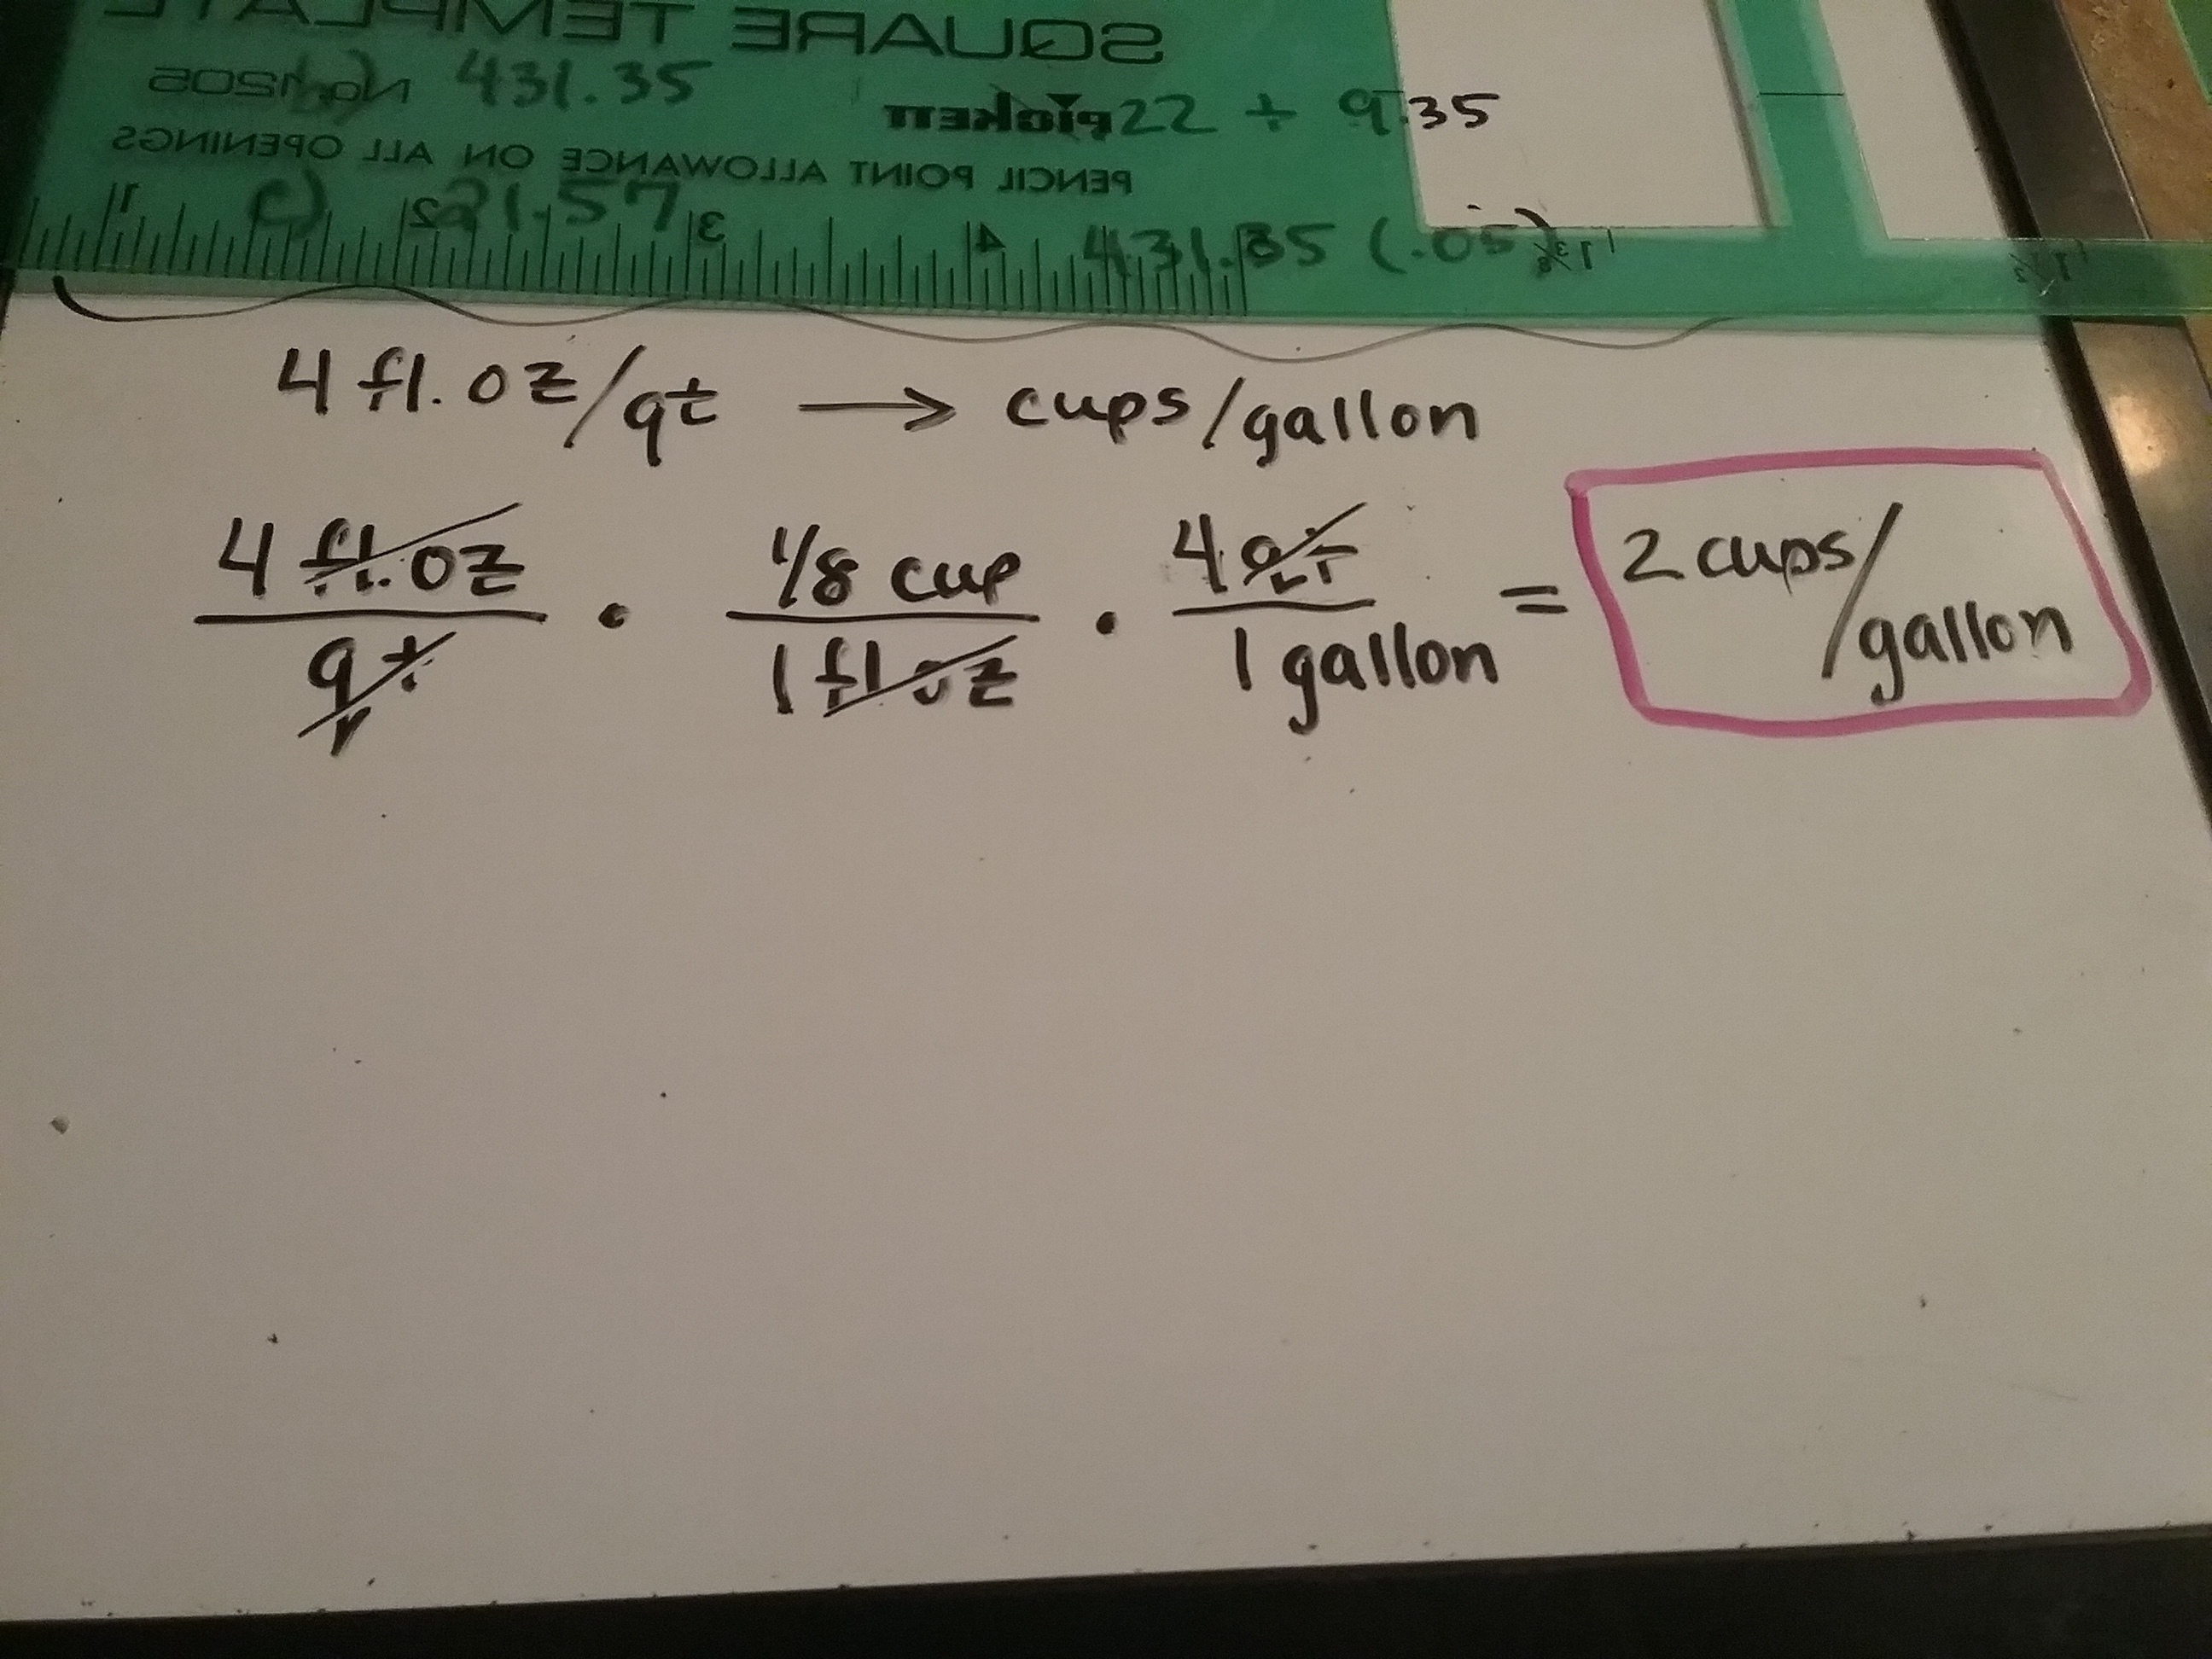 SQUARE TEMPLATE
No. 1205 431.35
pickett 22 ÷ 9.35
PENCIL POINT ALLOWANCE ON ALL OPENINGS
c) 21.57
1 2 3 4 431.35 (.05)
4 fl. oz/qt → cups/gallon
4 fl. oz/qt · 1/8 cup/1 fl oz · 4 qt/1 gallon = 2 cups/gallon